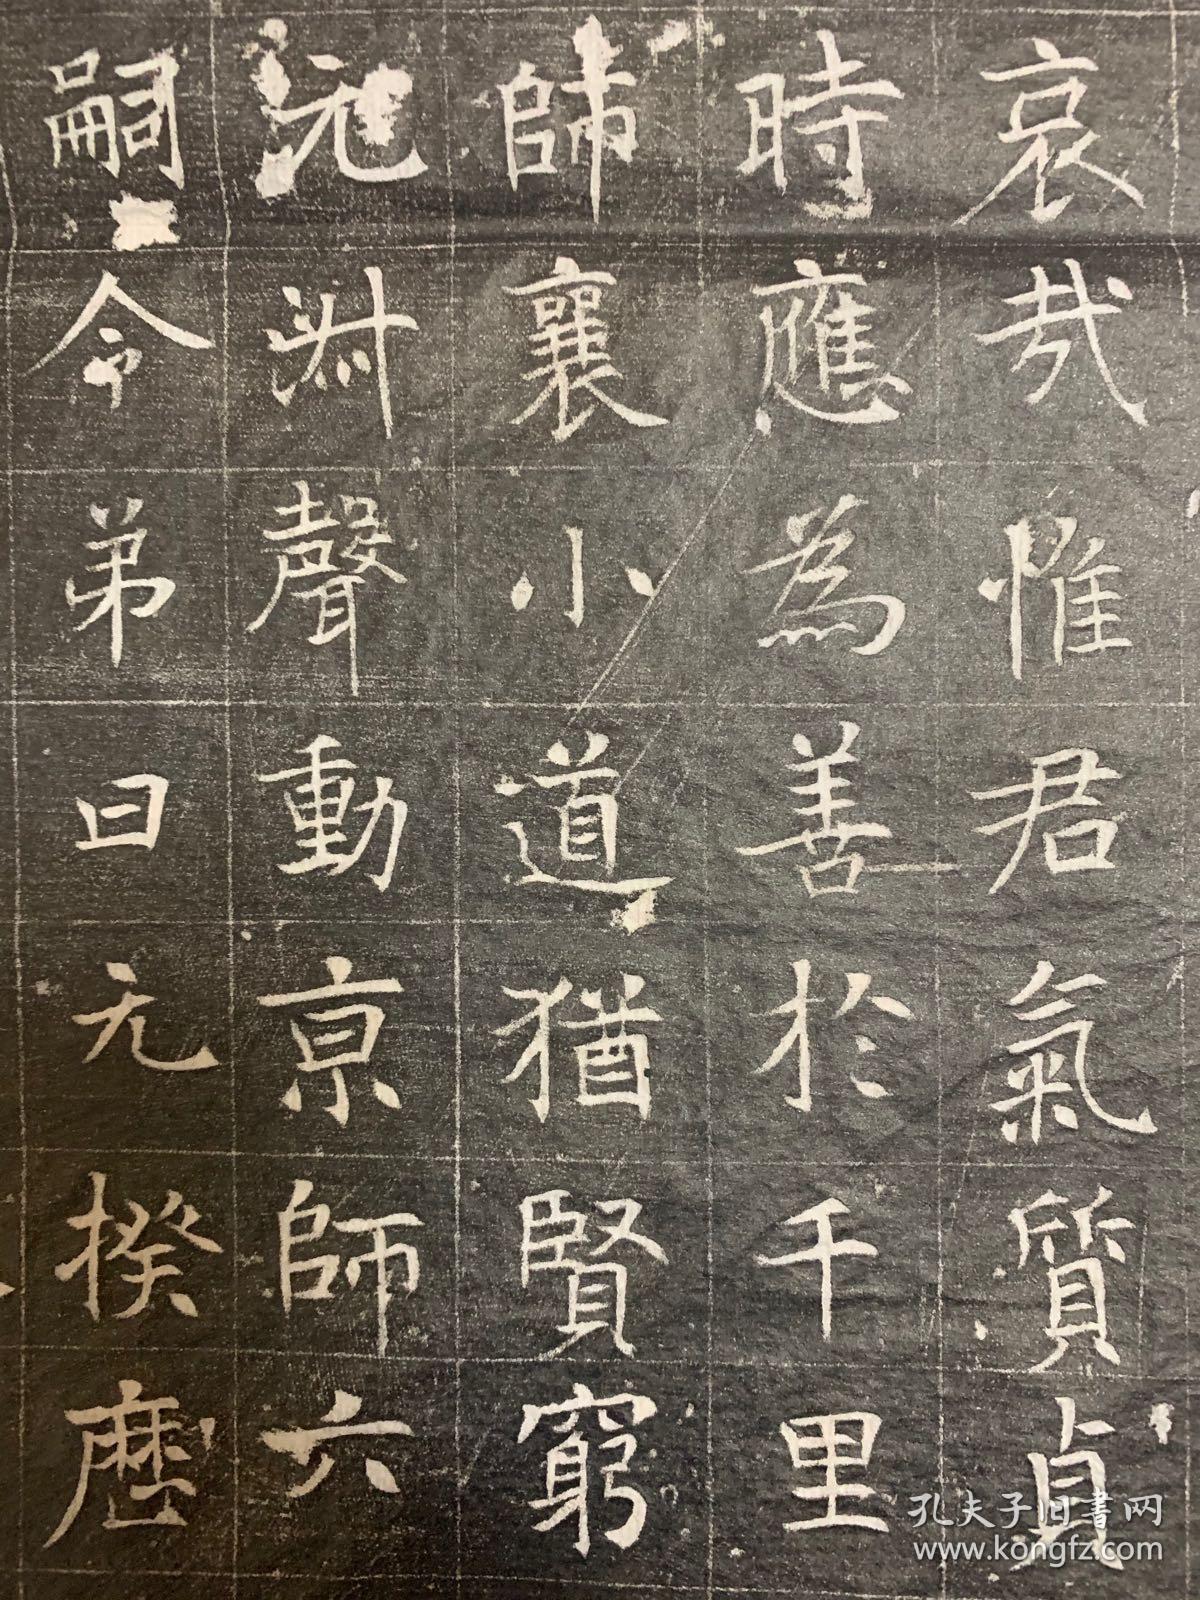 哀哉惟君氣質貞
時應為善於千里
師襄小道猶賢窮
沇洲聲動京師六
嗣令弟曰元揆歷
孔夫子旧書网
www.kongfz.com